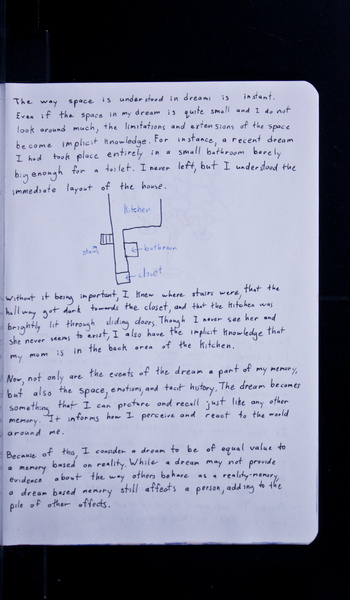 The way space is understood in dreams is instant.
Even if the space in my dream is quite small and I do not
look around much, the limitations and extensions of the space
become implicit knowledge. For instance, a recent dream
I had took place entirely in a small bathroom barely
big enough for a toilet. I never left, but I understood the
immediate layout of the house.
Kitchen
stairs
bathroom
closet
Without it being important, I knew where stairs were, that the
hallway got dark towards the closet, and that the kitchen was
brightly lit through sliding doors. Though I never see her and
she never seems to exist, I also have the implicit knowledge that
my mom is in the back area of the kitchen.
Now, not only are the events of the dream a part of my memory,
but also the space, emotions, and tacit history. The dream becomes
something that I can picture and recall just like any other
memory. It informs how I perceive and react to the world
around me.
Because of this, I consider a dream to be of equal value to
a memory based on reality. While a dream may not provide
evidence about the way others behave as a reality-memory,
a dream based memory still affects a person, adding to the
pile of other effects.